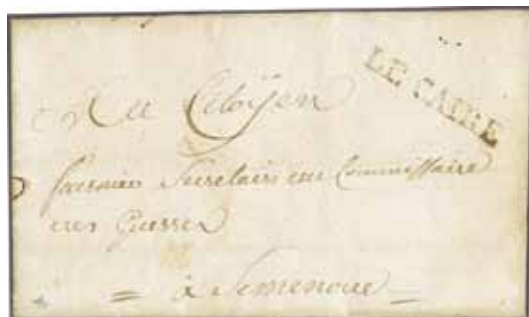 LE CAIRE
Au Citoyen
Secretaire
Commissaire
des Guerres
à Semenoue